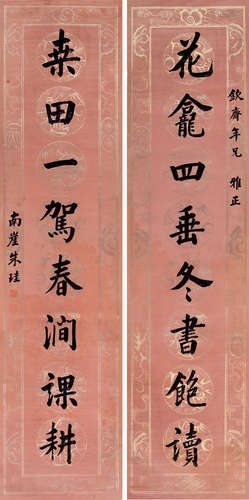 欽齋年兄 雅正
花龕四垂冬書飽讀
桒田一駕春澗課耕
南崖朱珪